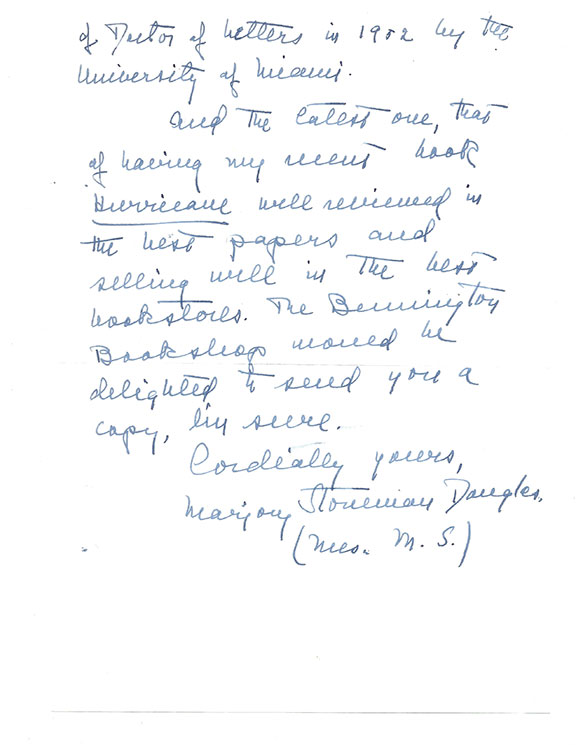 of Doctor of Letters in 1952 by the
University of Miami.
And the latest one, that
of having my recent book
Hurricane well reviewed in
the best papers and
selling well in the best
bookstores. The Bennington
Bookshop would be
delighted to send you a
copy, I'm sure.
Cordially yours,
Marjory Stoneman Douglas.
(Mrs. M. S.)